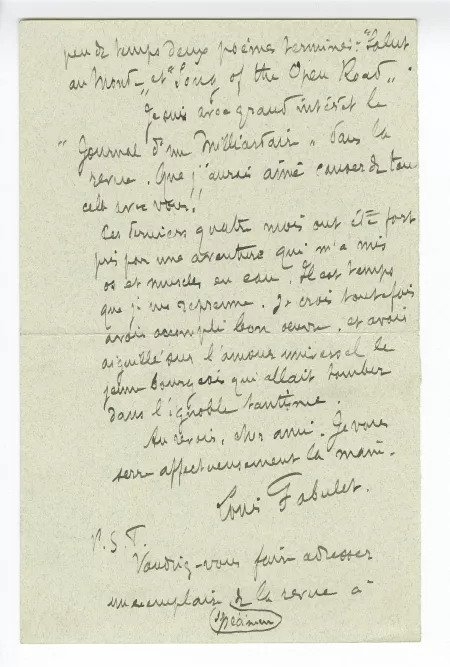 peu de temps deux poèmes terminés : "Salut
au Mont" et "Song of the Open Road".
Je suis avec grand intérêt le
"Journal d'un Milliardaire" dans la
revue. Que j'aurais aimé causer de tout
cela avec vous !!
Ces derniers quatre mois ont été fort
pris par une aventure qui m'a mis
os et muscles en eau. Il est temps
que je me reprenne. Je crois toutefois
avoir accompli bon oeuvre, et avoir
aiguillé sur l'amour universel le
jeune bourgeois qui allait tomber
dans l'ignoble
Au revoir, cher ami. Je vous
serre affectueusement la main.
Louis Fabulet.
P.S.T.
Voudriez-vous faire adresser
un exemplaire de la revue à
spécimen